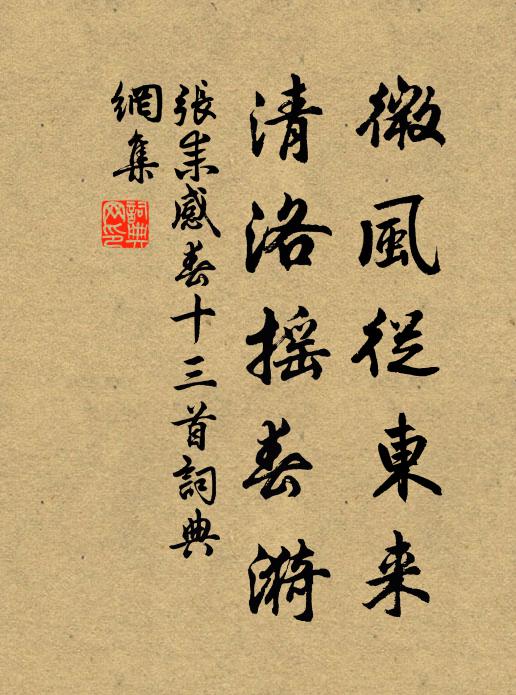 微風從東来
清洛摇春漪
張耒感春十三首詞典
網集
詞典
网印